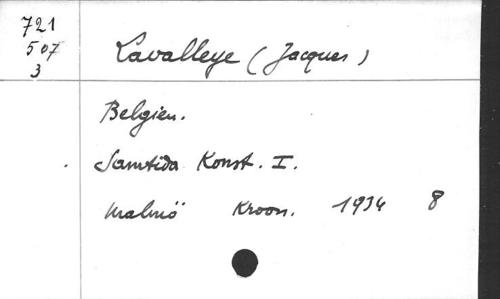 721
507
3
Lavalleye (Jacques)
Belgien.
Samtida Konst. I.
Malmö Kroon. 1934 8